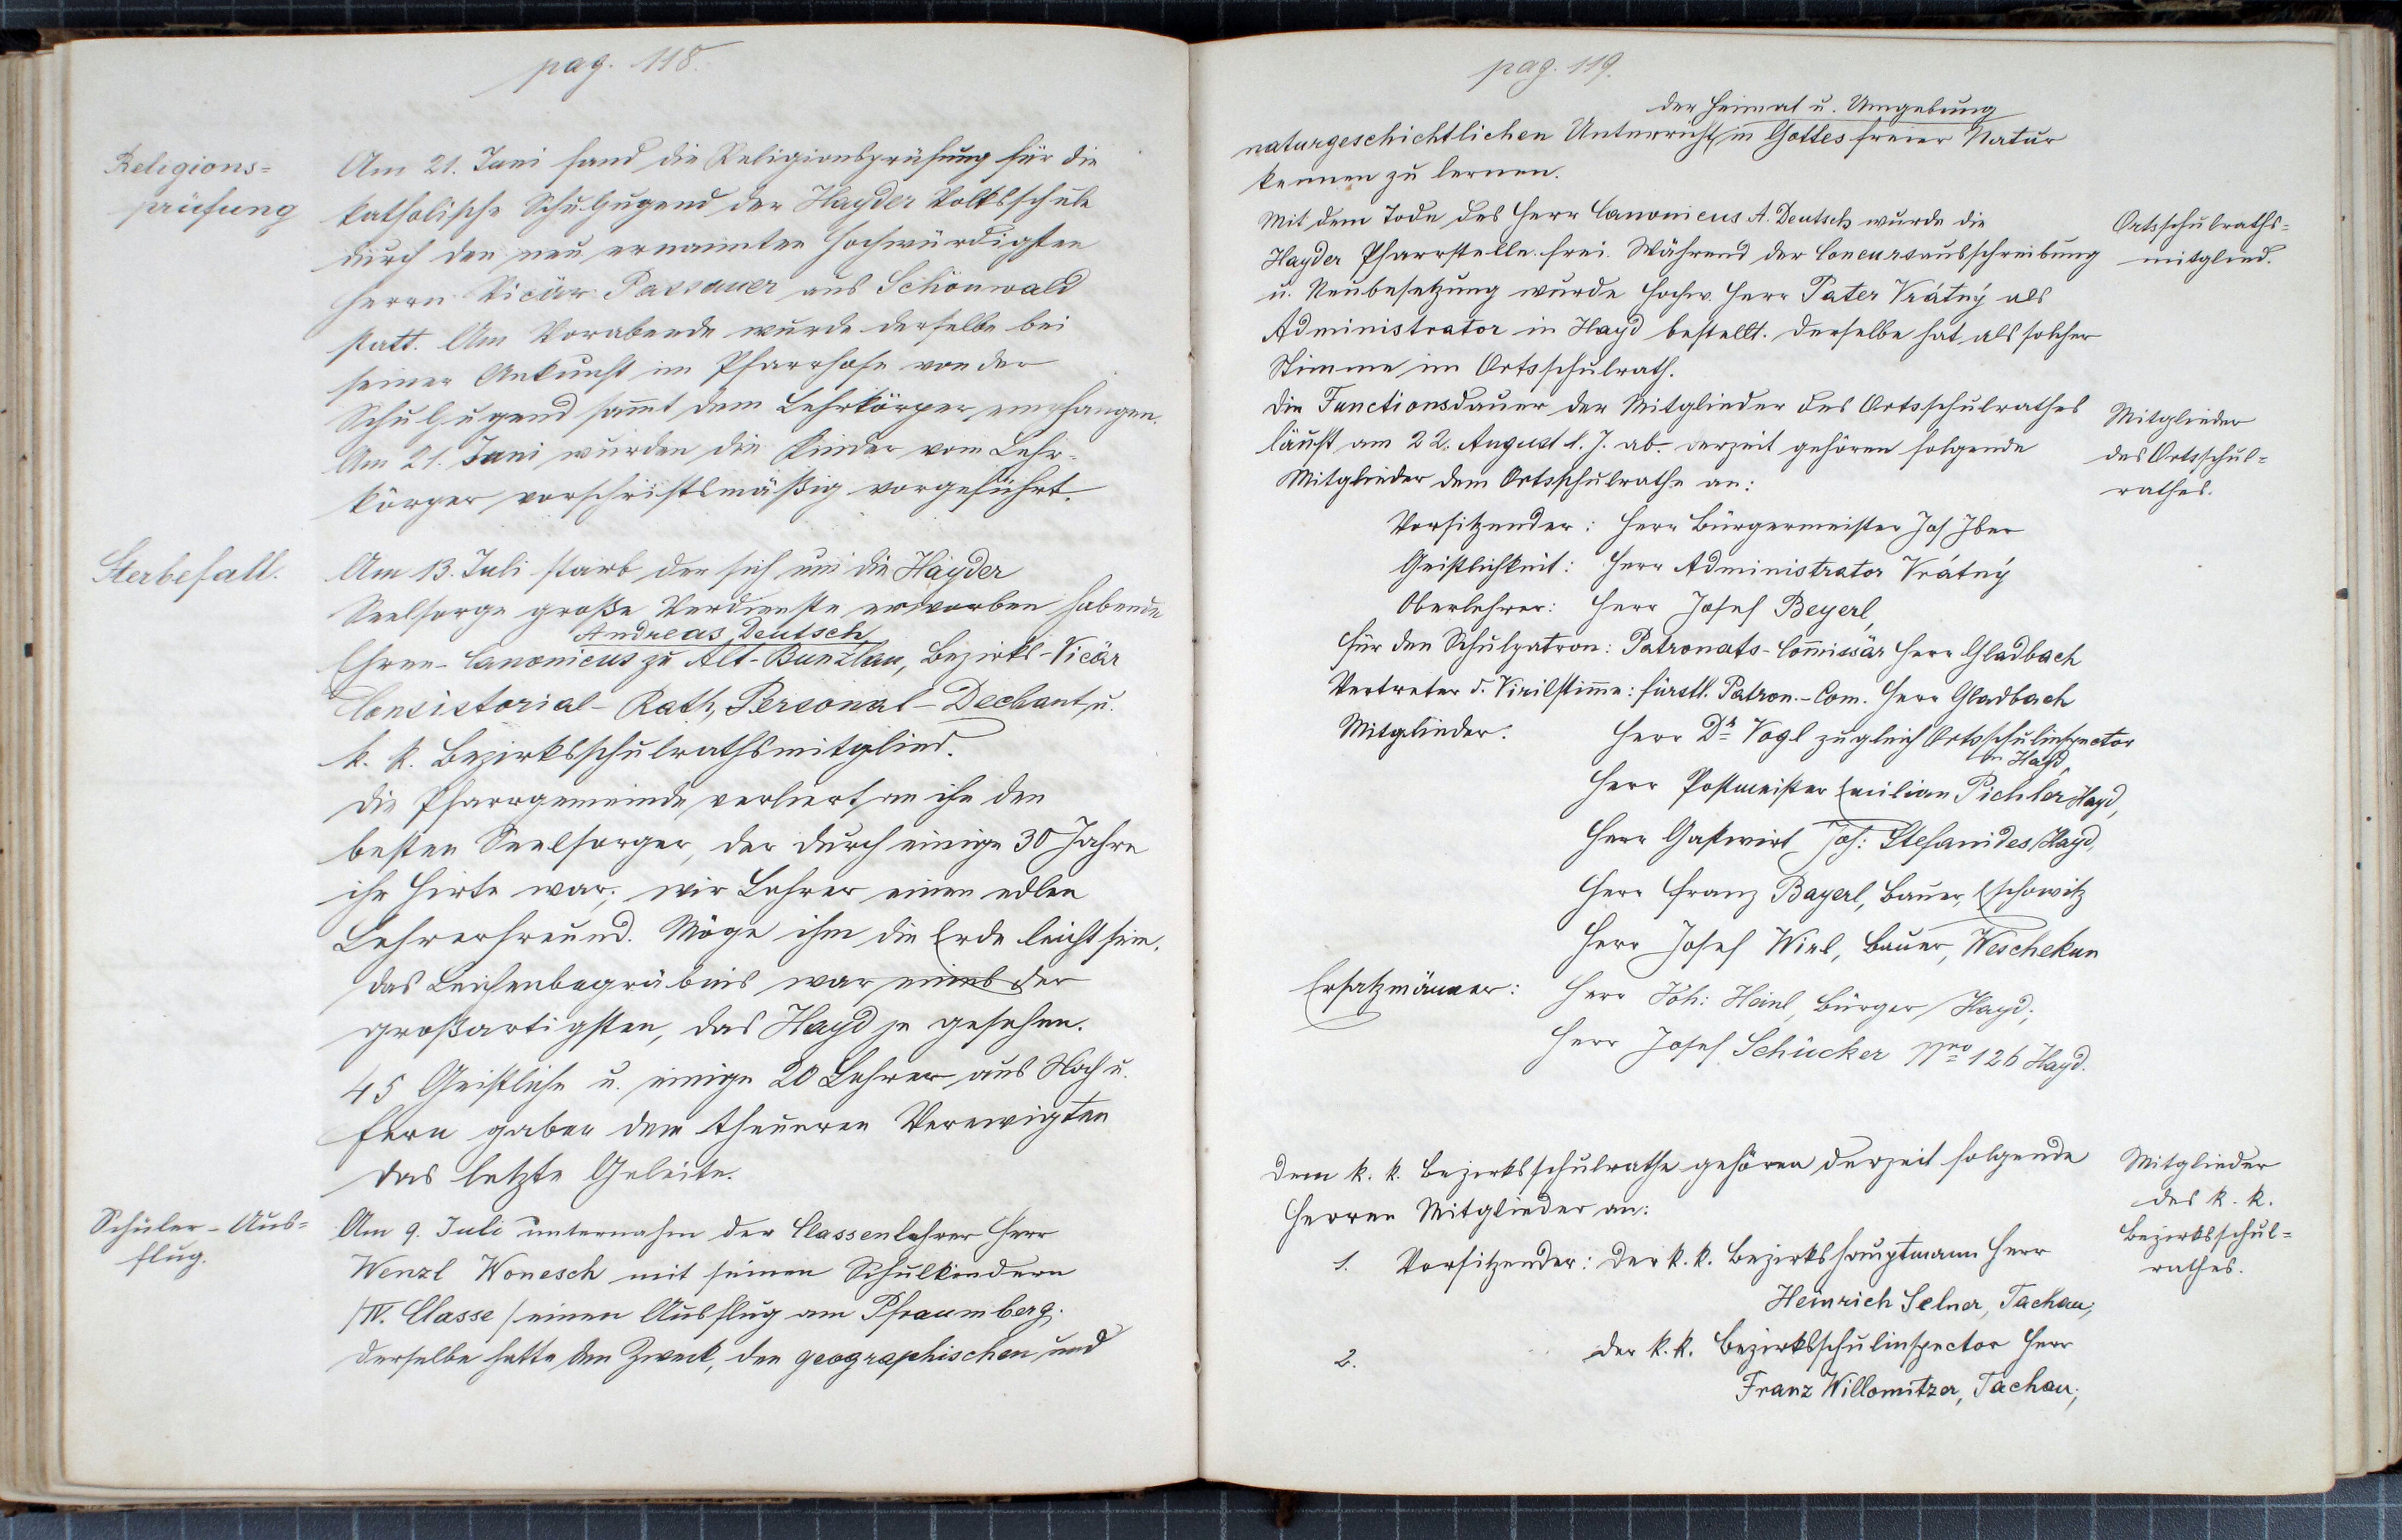 pag. 118.
Religions=
prüfung
Am 21. Juni fand die Religionsprüfung für die
katholische Schuljugend der Hayder Volksschule
durch den neu ernannten hochwürdigsten
Herrn Vicär Passauer aus Schönwald
statt. Am Vorabende wurde derselbe bei
seiner Ankunft im Pfarrhofe von der
Schuljugend sammt dem Lehrkörper empfangen.
Am 21. Juni wurden die Kinder vom Lehr-
körper vorschriftsmäßig vorgeführt.
Sterbefall.
Am 13. Juli starb der sich um die Hayder
Seelsorge große Verdienste erworben habende
Andreas Deutsch
Ehren-Canonicus zu Alt-Bunzlau, Bezirks-Vicär
Consistorial-Rath, Personal-Dechant u.
k. k. Bezirksschulrathsmitglied.
Die Pfarrgemeinde verliert an ihn den
besten Seelsorger, der durch einige 30 Jahre
ihr Hirte war; wir Lehrer einen edlen
Lehrerfreund. Möge ihm die Erde leicht sein.
Das Leichenbegräbnis war eines der
großartigsten, das Hayd je gesehen.
45 Geistliche u. einige 20 Lehrer aus Nach u.
Fern gaben dem theueren Verewigten
das letzte Geleite.
Schüler-Aus=
flug.
Am 9. Juli unternahm der Classenlehrer Herr
Wenzl Wonesch mit seinen Schulkindern
/IV. Classe/ einen Ausflug am Pfraumberg.
Derselbe hatte den Zweck, den geographischen und
pag. 119.
der Heimat u. Umgebung
naturgeschichtlichen Unterricht in Gottes freier Natur
kennen zu lernen.
Mit dem Tode des Herr Canonicus A. Deutsch wurde die
Hayder Pfarrstelle frei. Während der Concursausschreibung
u. Neubesetzung wurde Hochw. Herr Pater Vrátný als
Administrator in Hayd bestellt. Derselbe hat als solcher
Stimme im Ortsschulrath.
Ortsschulraths=
mitglied.
Die Functionsdauer der Mitglieder des Ortsschulrathes
läuft am 22. August l. J. ab. Derzeit gehören folgende
Mitglieder dem Ortsschulrathe an:
Mitglieder
des Ortsschul=
rathes.
Vorsitzender: Herr Bürgermeister Jos Iber
Geistlichkeit: Herr Administrator Vrátný
Oberlehrer: Herr Josef Beyerl,
für den Schulpatron: Patronats-Commissär Herr Gladbach
Vertreter d. Virilstimme: fürstl. Patron.-Com. Herr Gladbach
Mitglieder: Herr Dr Vogl zugleich Ortsschulinspector
in Hayd,
Herr Postmeister Emilian Pichler Hayd,
Herr Gastwirt Joh: Stefanides, Hayd,
Herr Franz Bayerl, Bauer, Eschowitz
Herr Josef Wirl, Bauer, Weschekun
Ersatzmänner: Herr Joh: Heinl, Bürger, Hayd;
Herr Josef Schücker Nro 126 Hayd.
Dem k. k. Bezirksschulrathe gehören derzeit folgende
Herren Mitglieder an:
Mitglieder
des k. k.
Bezirksschul=
rathes.
1. Vorsitzender: Der k. k. Bezirkshauptmann Herr
Heinrich Selner, Tachau;
2. der k. k. Bezirksschulinspector Herr
Franz Willomitzer, Tachau;